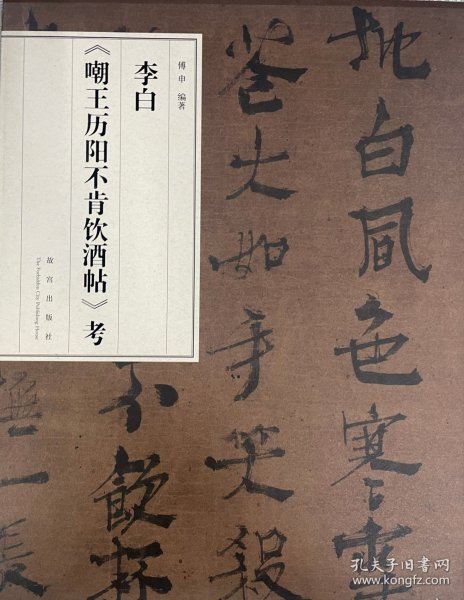 傅申 编著
李白
《嘲王历阳不肯饮酒帖》考
故宫出版社
The Forbidden City Publishing House
地白風色寒雪
花大如手笑殺
不飲杯
撫一張
孔夫子旧书网
www.kongfz.com